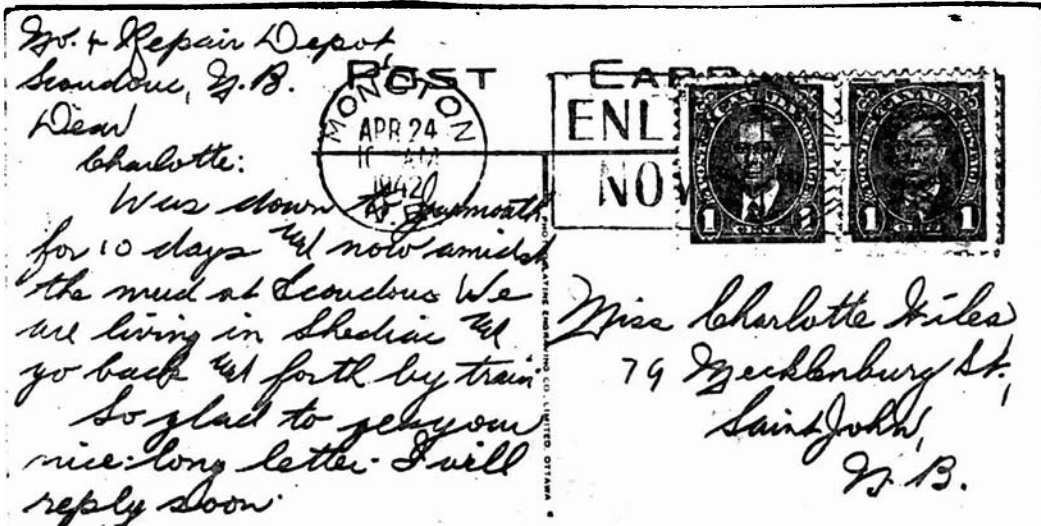 No. 4 Repair Depot,
Scoudouc, N.B.
Dear
Charlotte:
Was down to Yarmouth
for 10 days and now amidst
the mud at Scoudouc We
are living in Shediac and
go back and forth by train
So glad to get your
nice long letter. I will
reply soon.
POST CARD
MONCTON
APR 24
AM
1942
N.B.
ENL
NOW
CANADA
POSTES POSTAGE
1 CENT
CANADA
POSTES POSTAGE
1 1
ENGRAVING CO. LIMITED OTTAWA
Miss Charlotte Giles
79 Mecklenburg St.,
Saint John,
N.B.